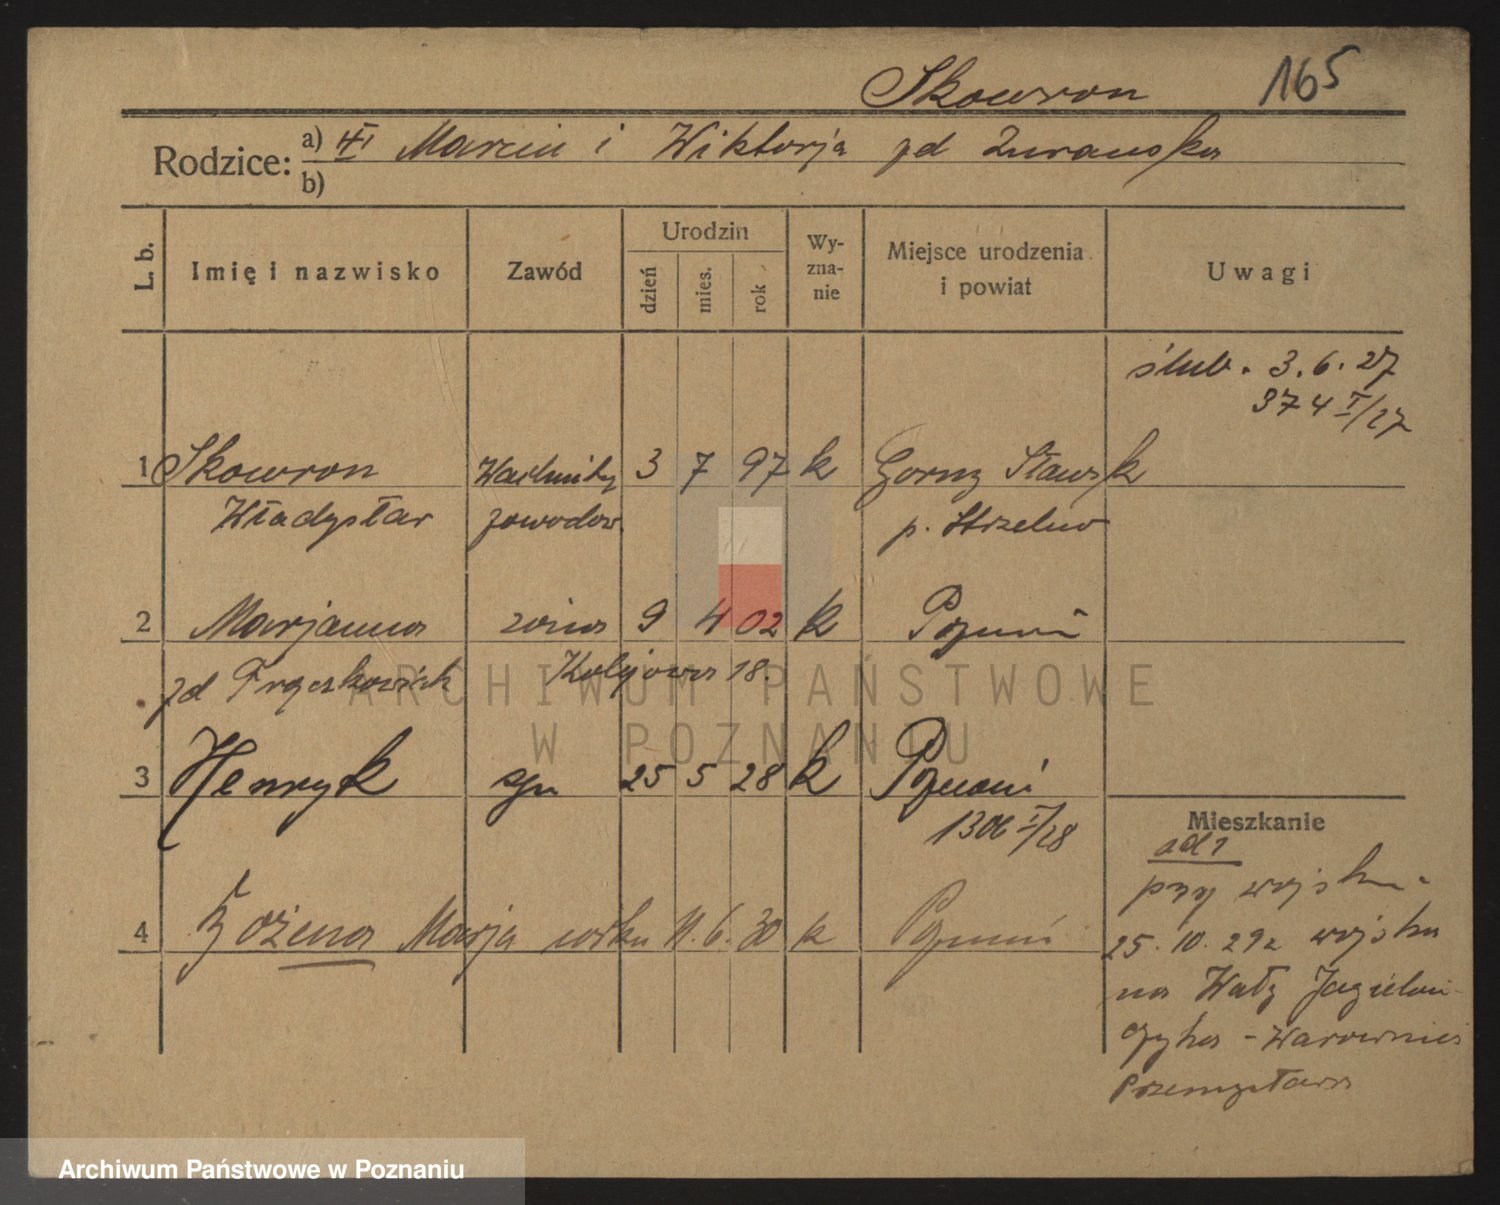 Skowron 165
Rodzice: a) Marcin i Wiktorja zd Żurawska
b)
L. b. Imię i nazwisko Zawód Urodzin dzień mies. rok Wy-zna-nie Miejsce urodzenia i powiat Uwagi
ślub. 3.6.27
374 I/27
1 Skowron 3 7 97 k Górny Sławsk
Władysław zawodow. p. Strzelno
2 Marjanna żona 9 4 02 k Poznań
zd Kolejowa 18.
3 Henryk syn 25 5 28 k Poznań
1306 I/28
Mieszkanie
ad 1
przy wojsku
4 Bożena Marja córka 11. 6. 30 k Poznań
25.10.29 z wojska
na Wały Jagieloń
czyka - Warownia
Przemysława
ARCHIWUM PAŃSTWOWE
W POZNANIU
Archiwum Państwowe w Poznaniu